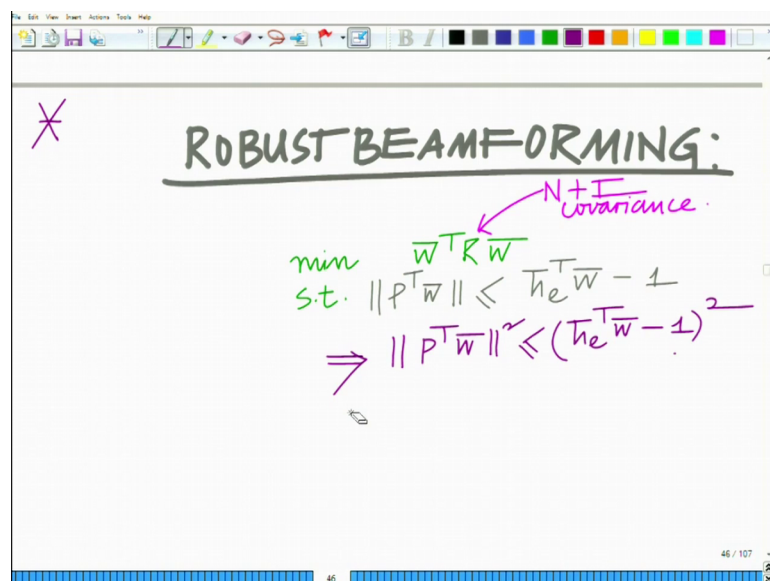 File Edit View Insert Actions Tools Help
B I
*
ROBUST BEAMFORMING:
N + I
covariance.
min w̅ᵀ R w̅
s.t. ||Pᵀw̅|| ≤ h̅ₑᵀw̅ − 1
⇒ ||Pᵀw̅||² ≤ (h̅ₑᵀw̅ − 1)²
46 / 107
46